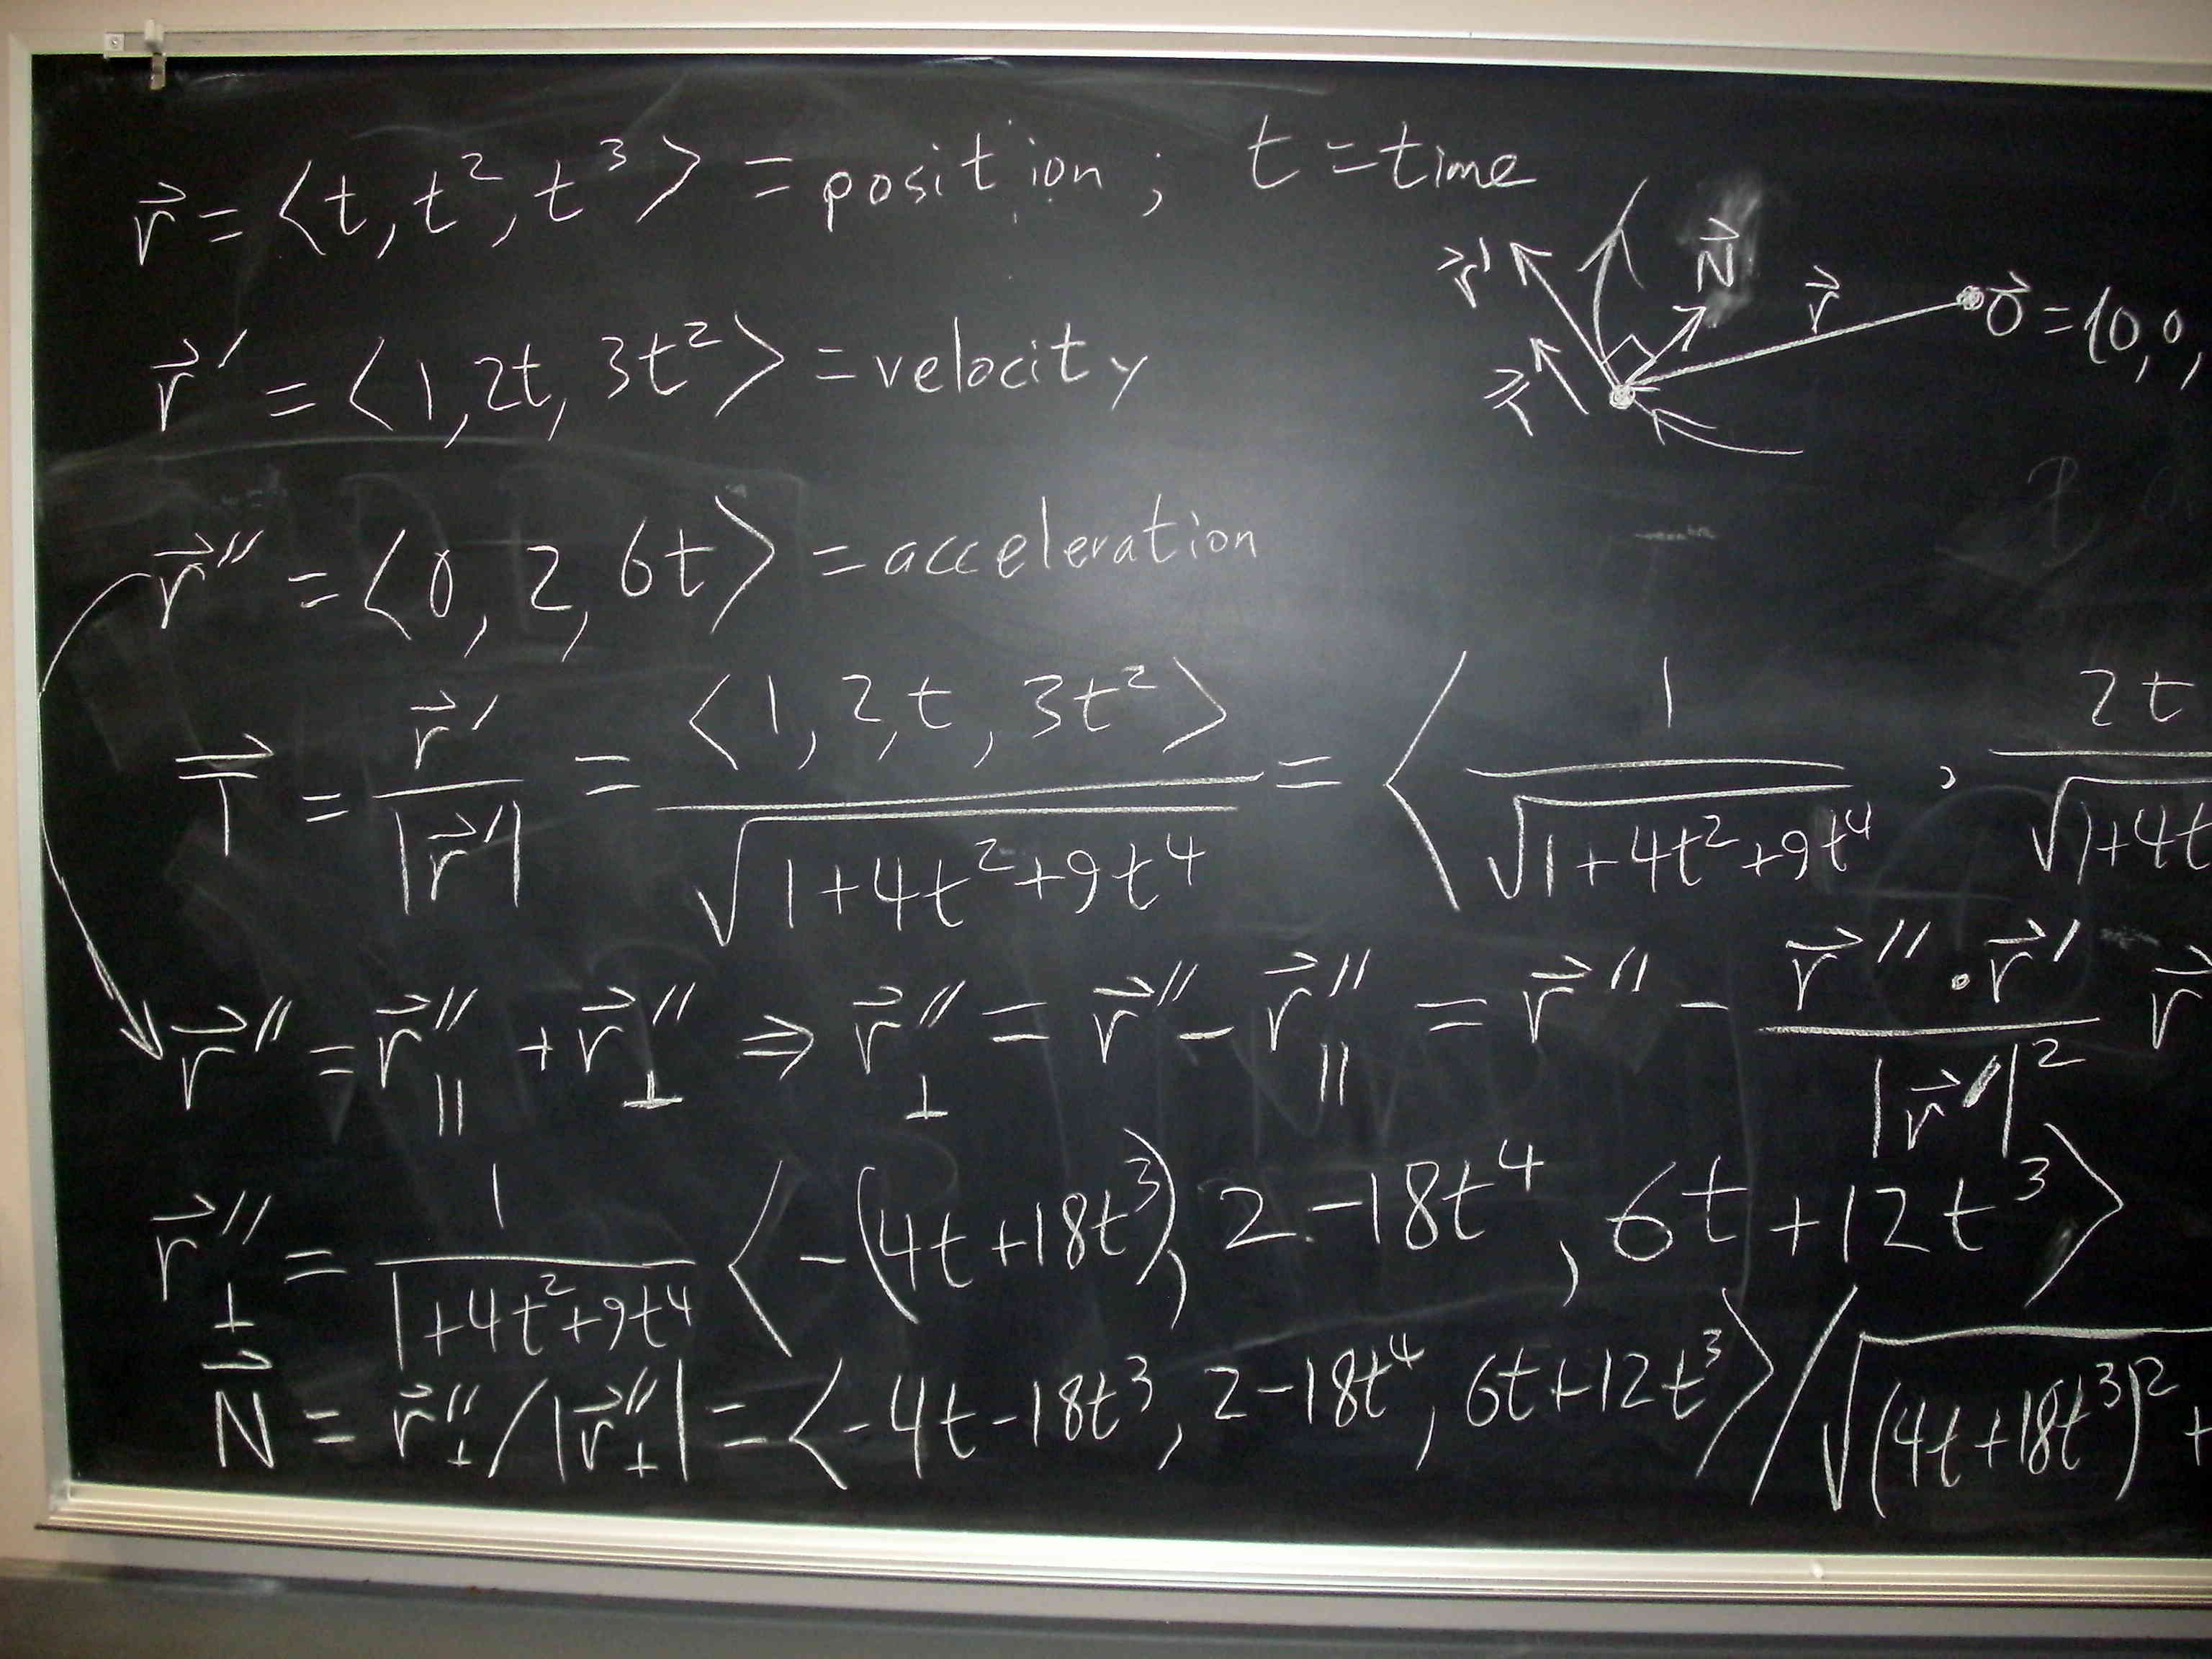 r⃗ = ⟨t, t², t³⟩ = position ; t = time
r⃗′ N⃗ r⃗ O⃗ = (0, 0,
T⃗
r⃗′ = ⟨1, 2t, 3t²⟩ = velocity
r⃗″ = ⟨0, 2, 6t⟩ = acceleration
T⃗ = r⃗′ / |r⃗′| = ⟨1, 2,t, 3t²⟩ / √(1+4t²+9t⁴) = ⟨ 1 / √(1+4t²+9t⁴) , 2t / √(1+4t
r⃗″ = r⃗″∥ + r⃗″⊥ ⇒ r⃗″⊥ = r⃗″ − r⃗″∥ = r⃗″ − (r⃗″ · r⃗′) / |r⃗′|² r⃗
r⃗″⊥ = 1 / (1+4t²+9t⁴) ⟨−(4t+18t³), 2−18t⁴, 6t+12t³⟩
N⃗ = r⃗″⊥ / |r⃗″⊥| = ⟨−4t−18t³, 2−18t⁴, 6t+12t³⟩ / √(4t+18t³)² +